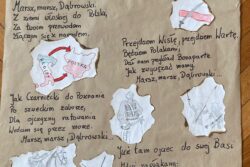 Marsz, marsz, Dąbrowski,
Z ziemi włoskiej do Polski,
Za twoim przewodem
Złączym się z narodem.
Przejdziem Wisłę, przejdziem Wartę,
Będziem Polakami,
Dał nam przykład Bonaparte
Jak zwyciężać mamy.
Marsz, marsz, Dąbrowski...
Jak Czarniecki do Poznania
Po szwedzkim zaborze,
Dla ojczyzny ratowania
Wrócim się przez morze.
Marsz, marsz, Dąbrowski...
Już tam ojciec do swej Basi